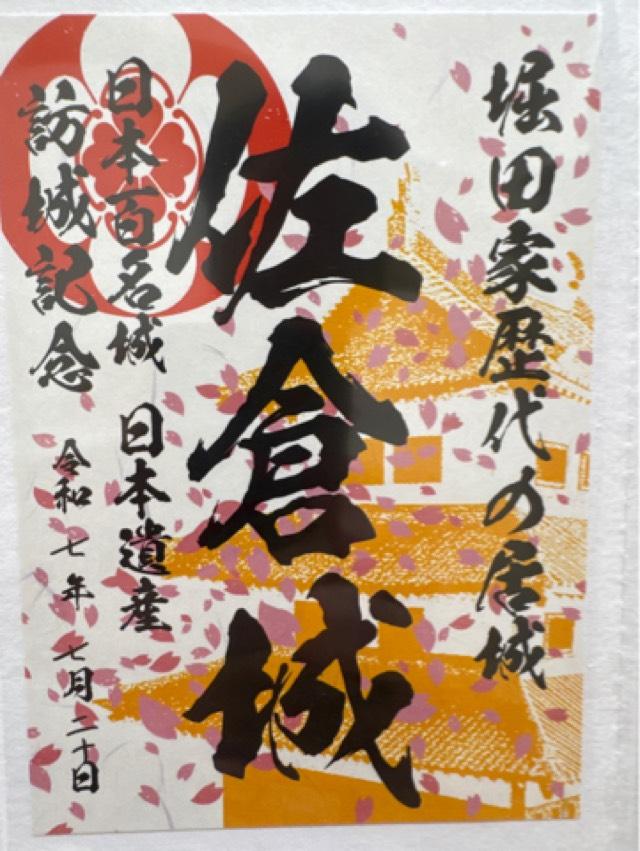 堀田家歴代の居城
佐倉城
日本百名城 日本遺産
訪城記念 令和七年七月二十日